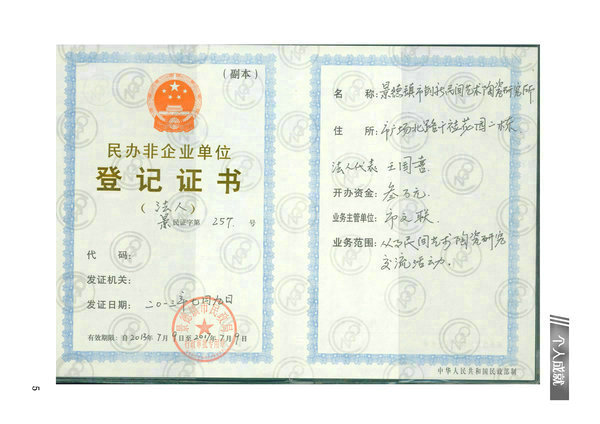 （副本）
民办非企业单位
登记证书
（法人）
景民证字第257.号
代 码：
发证机关：
发证日期：二〇一三年七月九日
有效期限：自2013年7月9日至2017年7月9日
景德镇市民政局
名 称：景德镇市创新民间艺术陶瓷研究所
住 所：市广场北路十社花园二栋
法人代表 王国喜
开办资金：叁万元
业务主管单位：市文联
业务范围：从事民间艺术陶瓷研究
交流活动.
中华人民共和国民政部制
个人成就
5